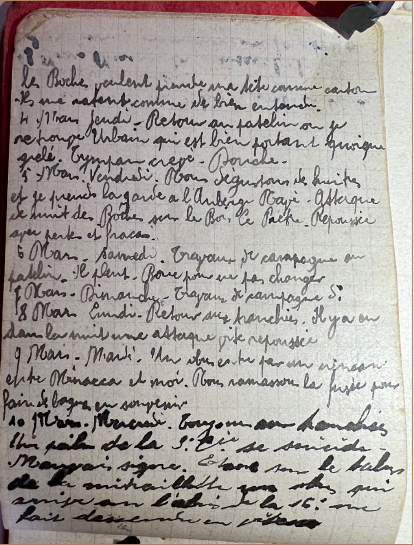 les Boches veulent prendre ma tête comme carton
Ils me ratent comme de bien entendu.
4 Mars Jeudi - Retour au patelin ou je
retrouve Urbain qui est bien portant quoique
grêlé. Tympan crevé - Douche -
5 Mars. Vendredi. Nous dégustons des huitres
et je prends la garde a l'Auberge Rayé. Attaque
de nuit des Boches sur le Bois Le Prêtre. Repoussée
avec pertes et fracas.
6 Mars - Samedi - Travaux de campagne au
patelin. Il pleut - Boue pour ne pas changer
7 Mars - Dimanche - Travaux de campagne
8 Mars Lundi - Retour aux tranchées. Il y a eu
dans la nuit une attaque vite repoussée
9 Mars - Mardi. Un obus entre par un créneau
entre et moi. Nous ramassons la fusée pour
faire des bagues en souvenir
10 Mars - Mercredi. Toujours aux tranchées
Un poilu de la se suicide -
Mauvais signe. sur le talus
de la mitrailleuse un obus qui
arrive sur l'abri de la 16e me
fait descendre en vitesse